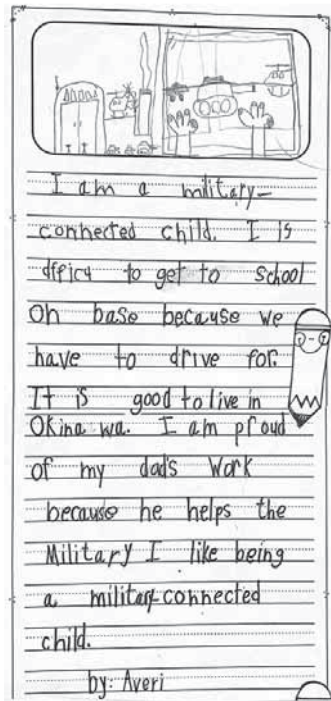 I am a military-
connected child. I is
dfficu to get to school
on base because we
have to drive for.
It is good to live in
Okinawa. I am proud
of my dad's work
because he helps the
Military I like being
a military connected
child.
by: Averi